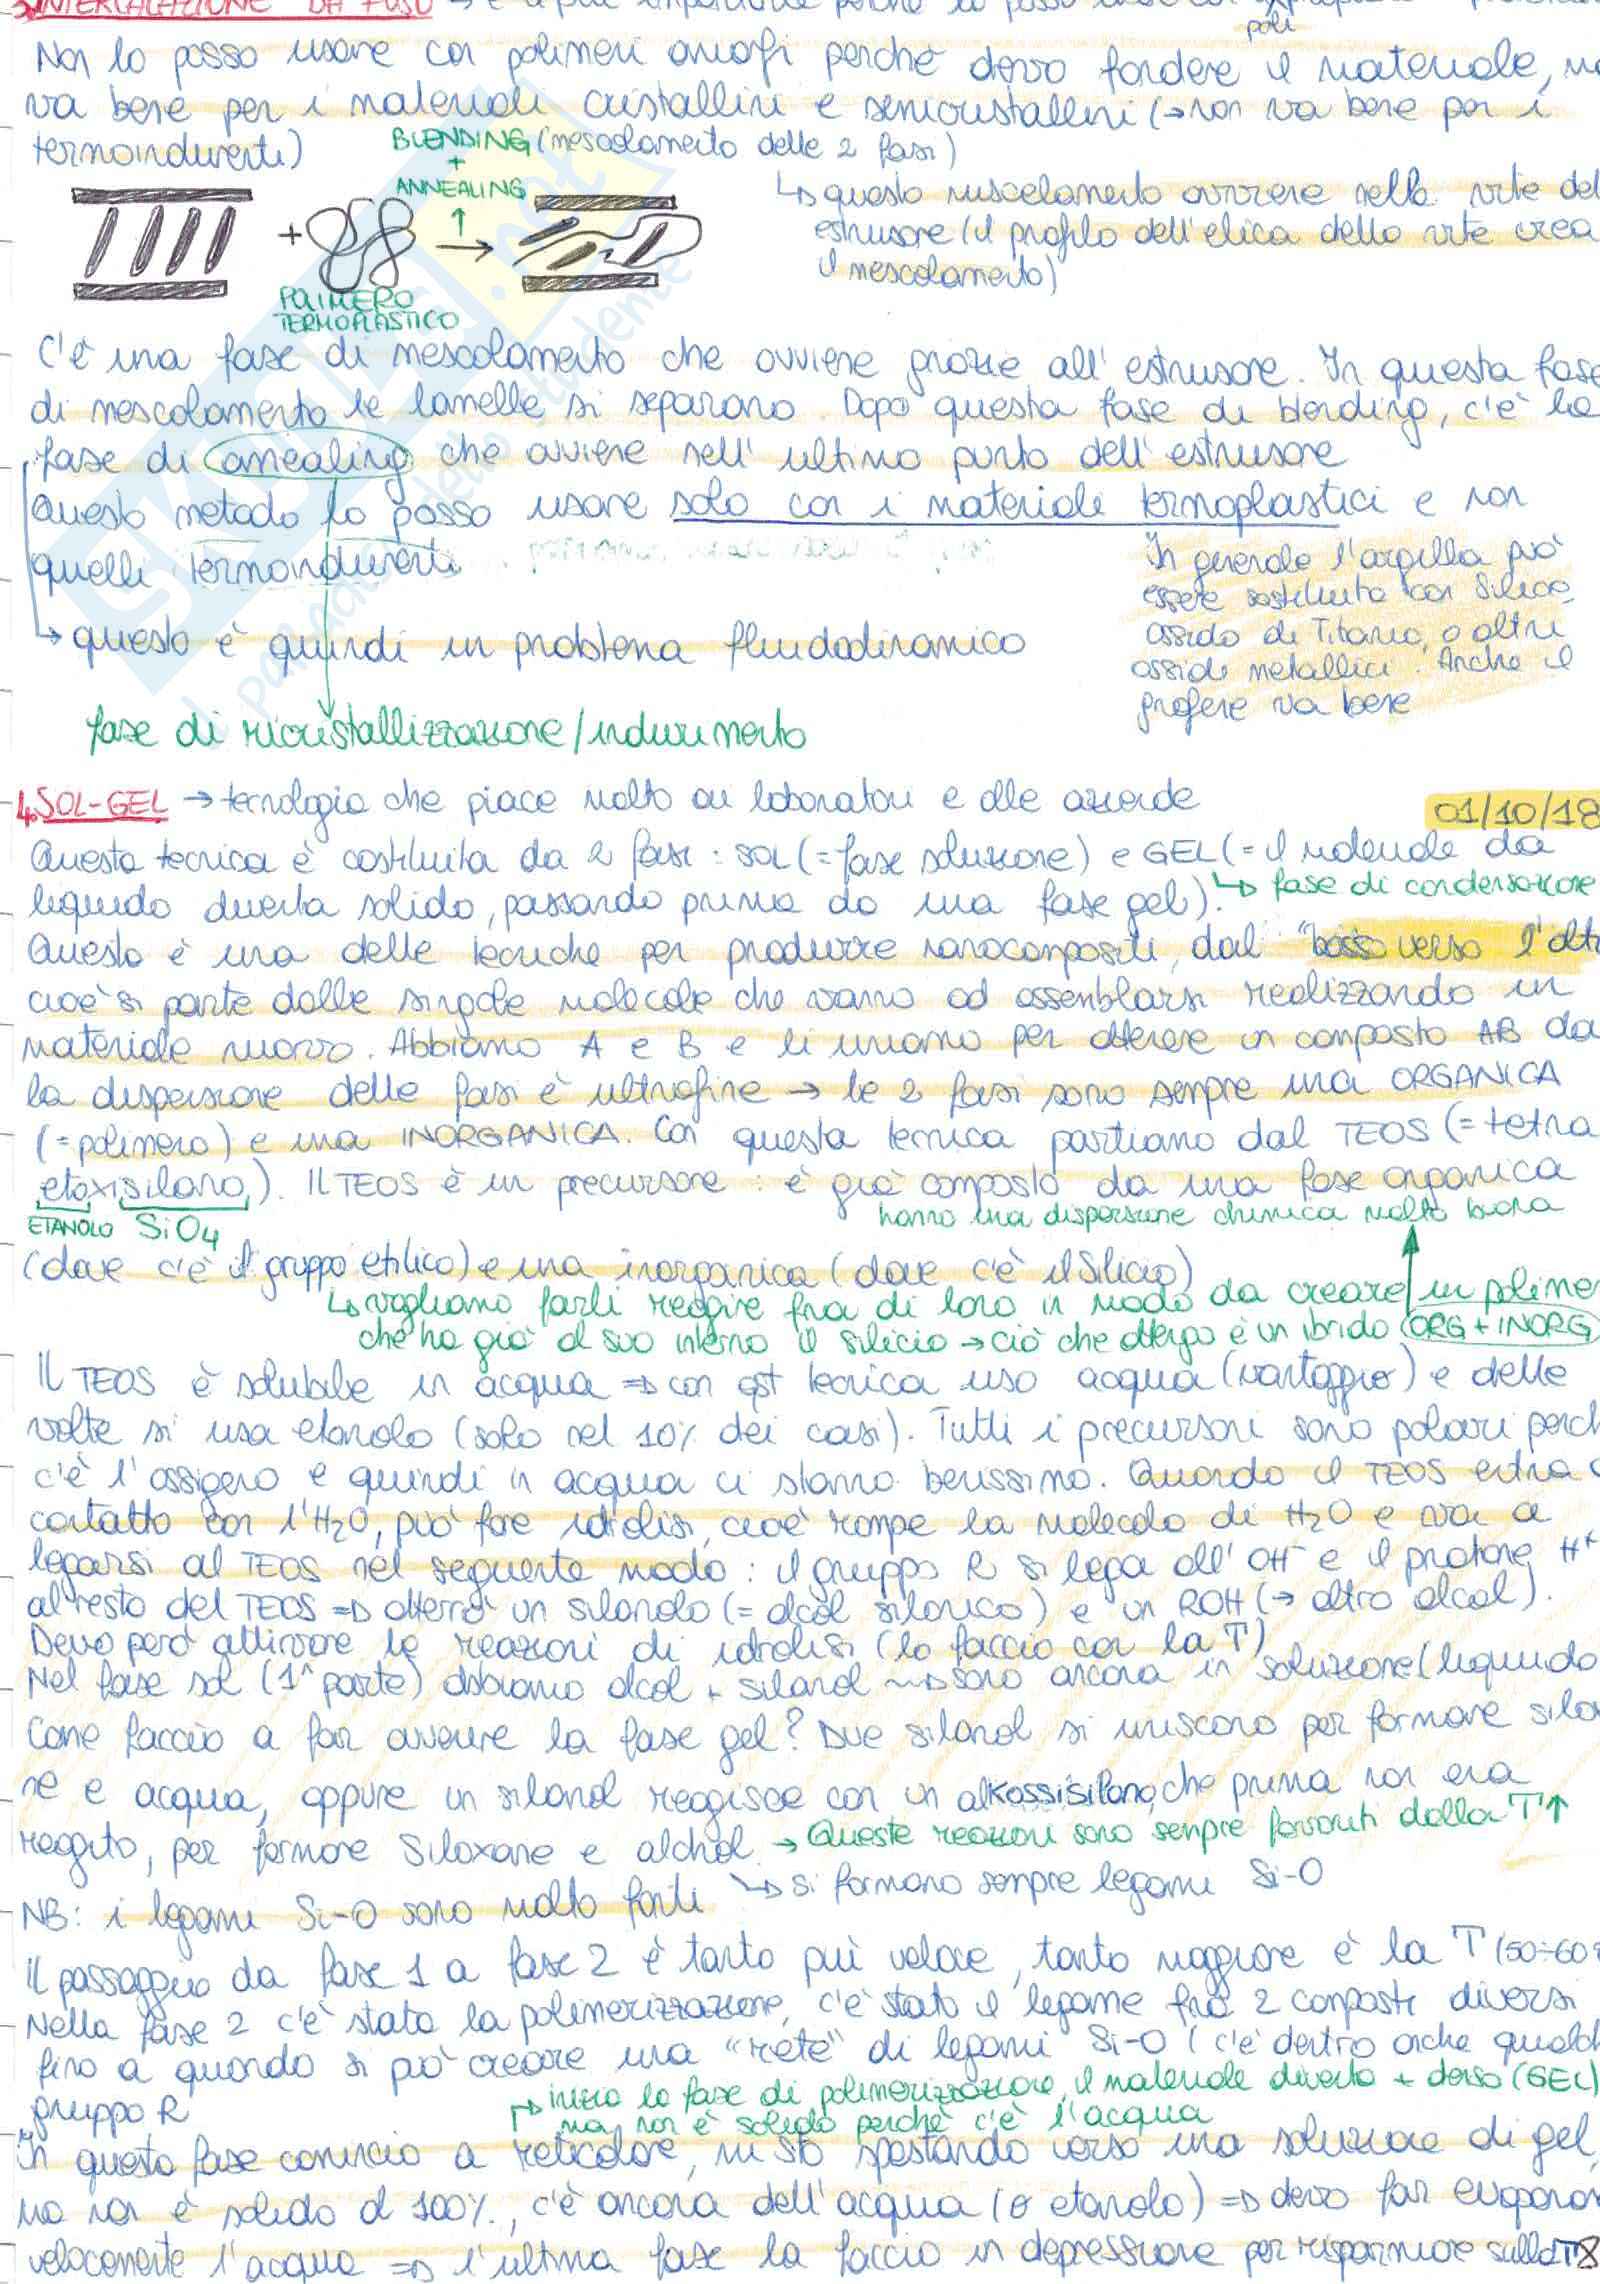 3. INTERCALAZIONE DA FUSO → è
poli
Non lo posso usare con polimeri amorfi perché devo fondere il materiale, ma
va bene per i materiali cristallini e semicristallini (→ non va bene per i
termoindurenti)
BLENDING (mescolamento delle 2 fasi)
+
ANNEALING
↳ questo miscelamento avviene nella vite del
estrusore (il profilo dell'elica della vite crea
il mescolamento)
+
POLIMERO
TERMOPLASTICO
C'è una fase di mescolamento che avviene grazie all'estrusore. In questa fase
di mescolamento le lamelle si separano. Dopo questa fase di blending, c'è la
fase di annealing che avviene nell'ultimo punto dell'estrusore
Questo metodo lo posso usare solo con i materiale termoplastici e non
quelli termoindurenti
In generale l'argilla può
essere sostituita con Silice,
ossido di Titanio, o altri
ossidi metallici. Anche il
grafene va bene
→ questo è quindi un problema fluidodinamico
fase di ricristallizzazione/indurimento
4. SOL-GEL → tecnologia che piace molto ai laboratori e alle aziende
01/10/18
Questa tecnica è costituita da 2 fasi: SOL (= fase soluzione) e GEL (= il materiale da
liquido diventa solido, passando prima da una fase gel). ↳ fase di condensazione
Questa è una delle tecniche per produrre nanocompositi, dal "basso verso l'alt
cioè si parte dalle singole molecole che vanno ad assemblarsi realizzando un
materiale nuovo. Abbiamo A e B e li uniamo per ottenere un composto AB da
la dispersione delle fasi è ultrafine → le 2 fasi sono sempre una ORGANICA
(= polimero) e una INORGANICA. Con questa tecnica partiamo dal TEOS (= tetra
etoxisilano). Il TEOS è un precursore: è già composto da una fase organica
ETANOLO SiO4
hanno una dispersione chimica molto buona
(dove c'è il gruppo etilico) e una inorganica (dove c'è il Silicio)
↳ vogliamo farli reagire fra di loro in modo da creare un polime
che ha già al suo interno il silicio → ciò che ottengo è un ibrido (ORG + INORG)
Il TEOS è solubile in acqua ⇒ con qst tecnica uso acqua (vantaggio) e delle
volte si usa etanolo (solo nel 10% dei casi). Tutti i precursori sono polari perch
c'è l'ossigeno e quindi in acqua ci stanno benissimo. Quando il TEOS entra
contatto con l'H2O, può fare idrolisi, cioè rompe la molecola di H2O e va a
legarsi al TEOS nel seguente modo: il gruppo R si lega all'OH- e il protone H+
al resto del TEOS ⇒ otterrò un silanolo (= alcol silanico) e un ROH (→ altro alcol).
Devo però attivare le reazioni di idrolisi (lo faccio con la T)
Nel fase sol (1^ parte) abbiamo alcol + silanol → sono ancora in soluzione (liquido
Come faccio a far avvenire la fase gel? Due silanol si uniscono per formare silo
ne e acqua, oppure un silanol reagisce con un alkossisilano, che prima non era
reagito, per formare Siloxane e alchol → Queste reazioni sono sempre favoriti dalla T↑
↳ si formano sempre legami Si-O
NB: i legami Si-O sono molto forti
Il passaggio da fase 1 a fase 2 è tanto più veloce, tanto maggiore è la T (50÷60
Nella fase 2 c'è stata la polimerizzazione, c'è stato il legame fra 2 composti diversi
fino a quando si può creare una "rete" di legami Si-O (c'è dentro anche qualch
gruppo R
→ inizia la fase di polimerizzazione, il materiale diventa + denso (GEL)
ma non è solido perché c'è l'acqua
In questa fase comincio a reticolare, mi sto spostando verso una soluzione di gel,
ma non è solido al 100%, c'è ancora dell'acqua (o etanolo) ⇒ devo far evaporar
velocemente l'acqua ⇒ l'ultima fase la faccio in depressione per risparmiare sulla T
8
SKUOLA.net
il paradiso dello studente